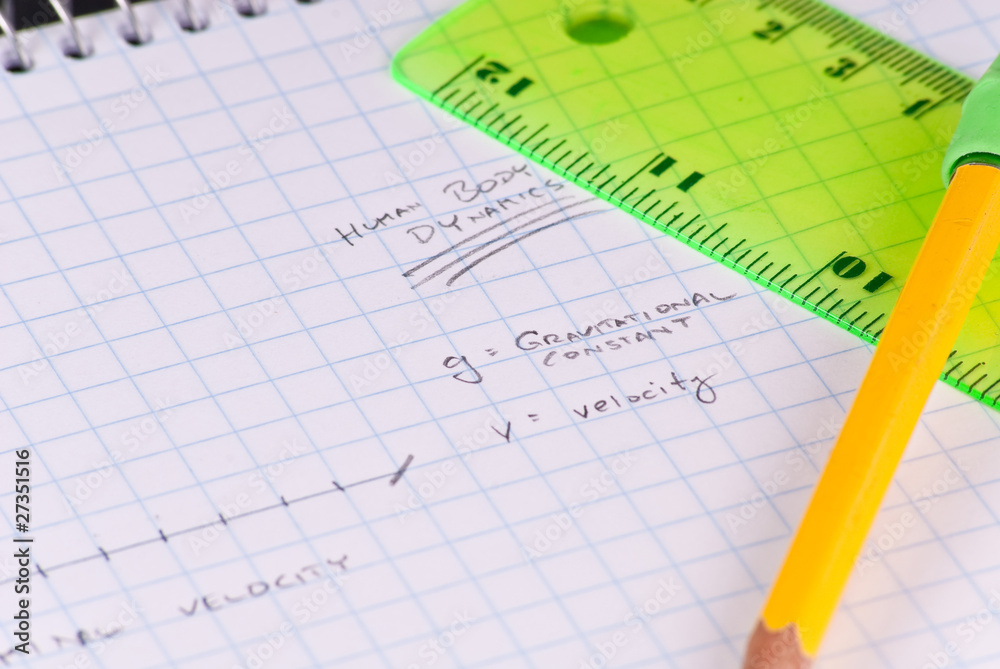 2
3
4
12
11
10
HUMAN BODY
DYNAMICS
g = GRAVITATIONAL
CONSTANT
v = velocity
VELOCITY
Adobe Stock | #27351516